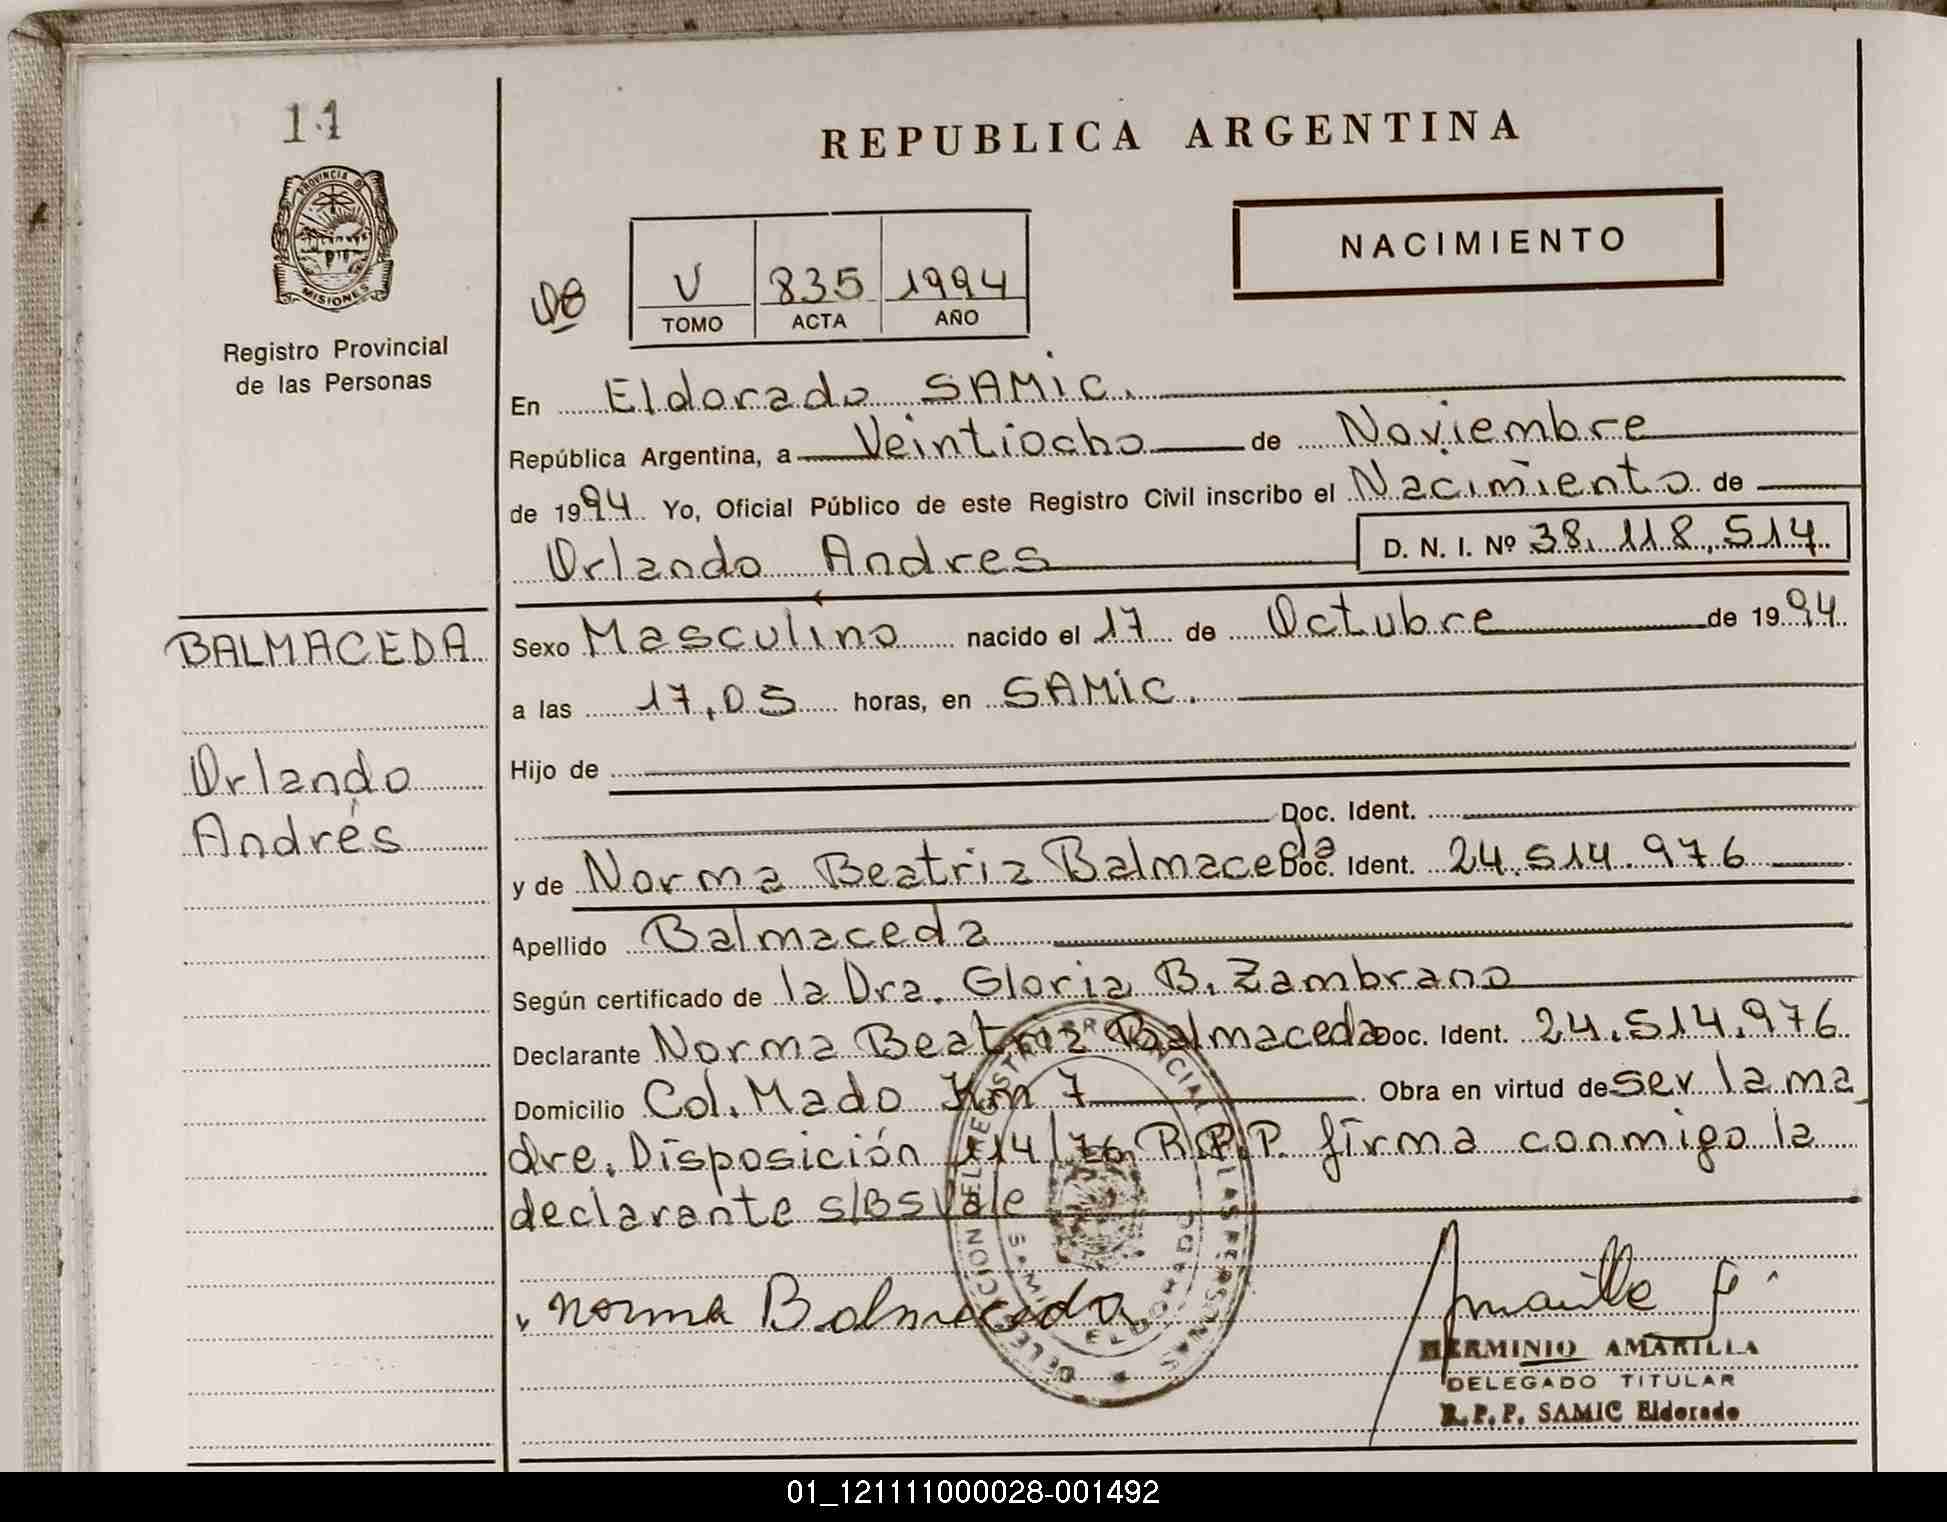 11
PROVINCIA DE
MISIONES
Registro Provincial
de las Personas
BALMACEDA
Orlando
Andrés
REPUBLICA ARGENTINA
NACIMIENTO
V 835 1994
TOMO ACTA AÑO
En Eldorado SAMIC.
República Argentina, a Veintiocho de Noviembre
de 1994 Yo, Oficial Público de este Registro Civil inscribo el Nacimiento de
Orlando Andres D. N. I. Nº 38.118.514
Sexo Masculino nacido el 17 de Octubre de 1994
a las 17,05 horas, en SAMIC.
Hijo de
Doc. Ident.
y de Norma Beatriz Balmaceda Doc. Ident. 24.514.976
Apellido Balmaceda
Según certificado de la Dra. Gloria B. Zambrano
Declarante Norma Beatriz Balmaceda Doc. Ident. 24.514.976
Domicilio Col. Mado Km 7 Obra en virtud de ser la ma
dre. Disposición 114/76 R.P.P. firma conmigo la
declarante s/Bs Vale
DELEGACION DEL REGISTRO PROVINCIAL DE LAS PERSONAS
ELDORADO
MIS.
Norma Balmaceda
Amarilla H.
HERMINIO AMARILLA
DELEGADO TITULAR
R.P.P. SAMIC Eldorado
01_121111000028-001492